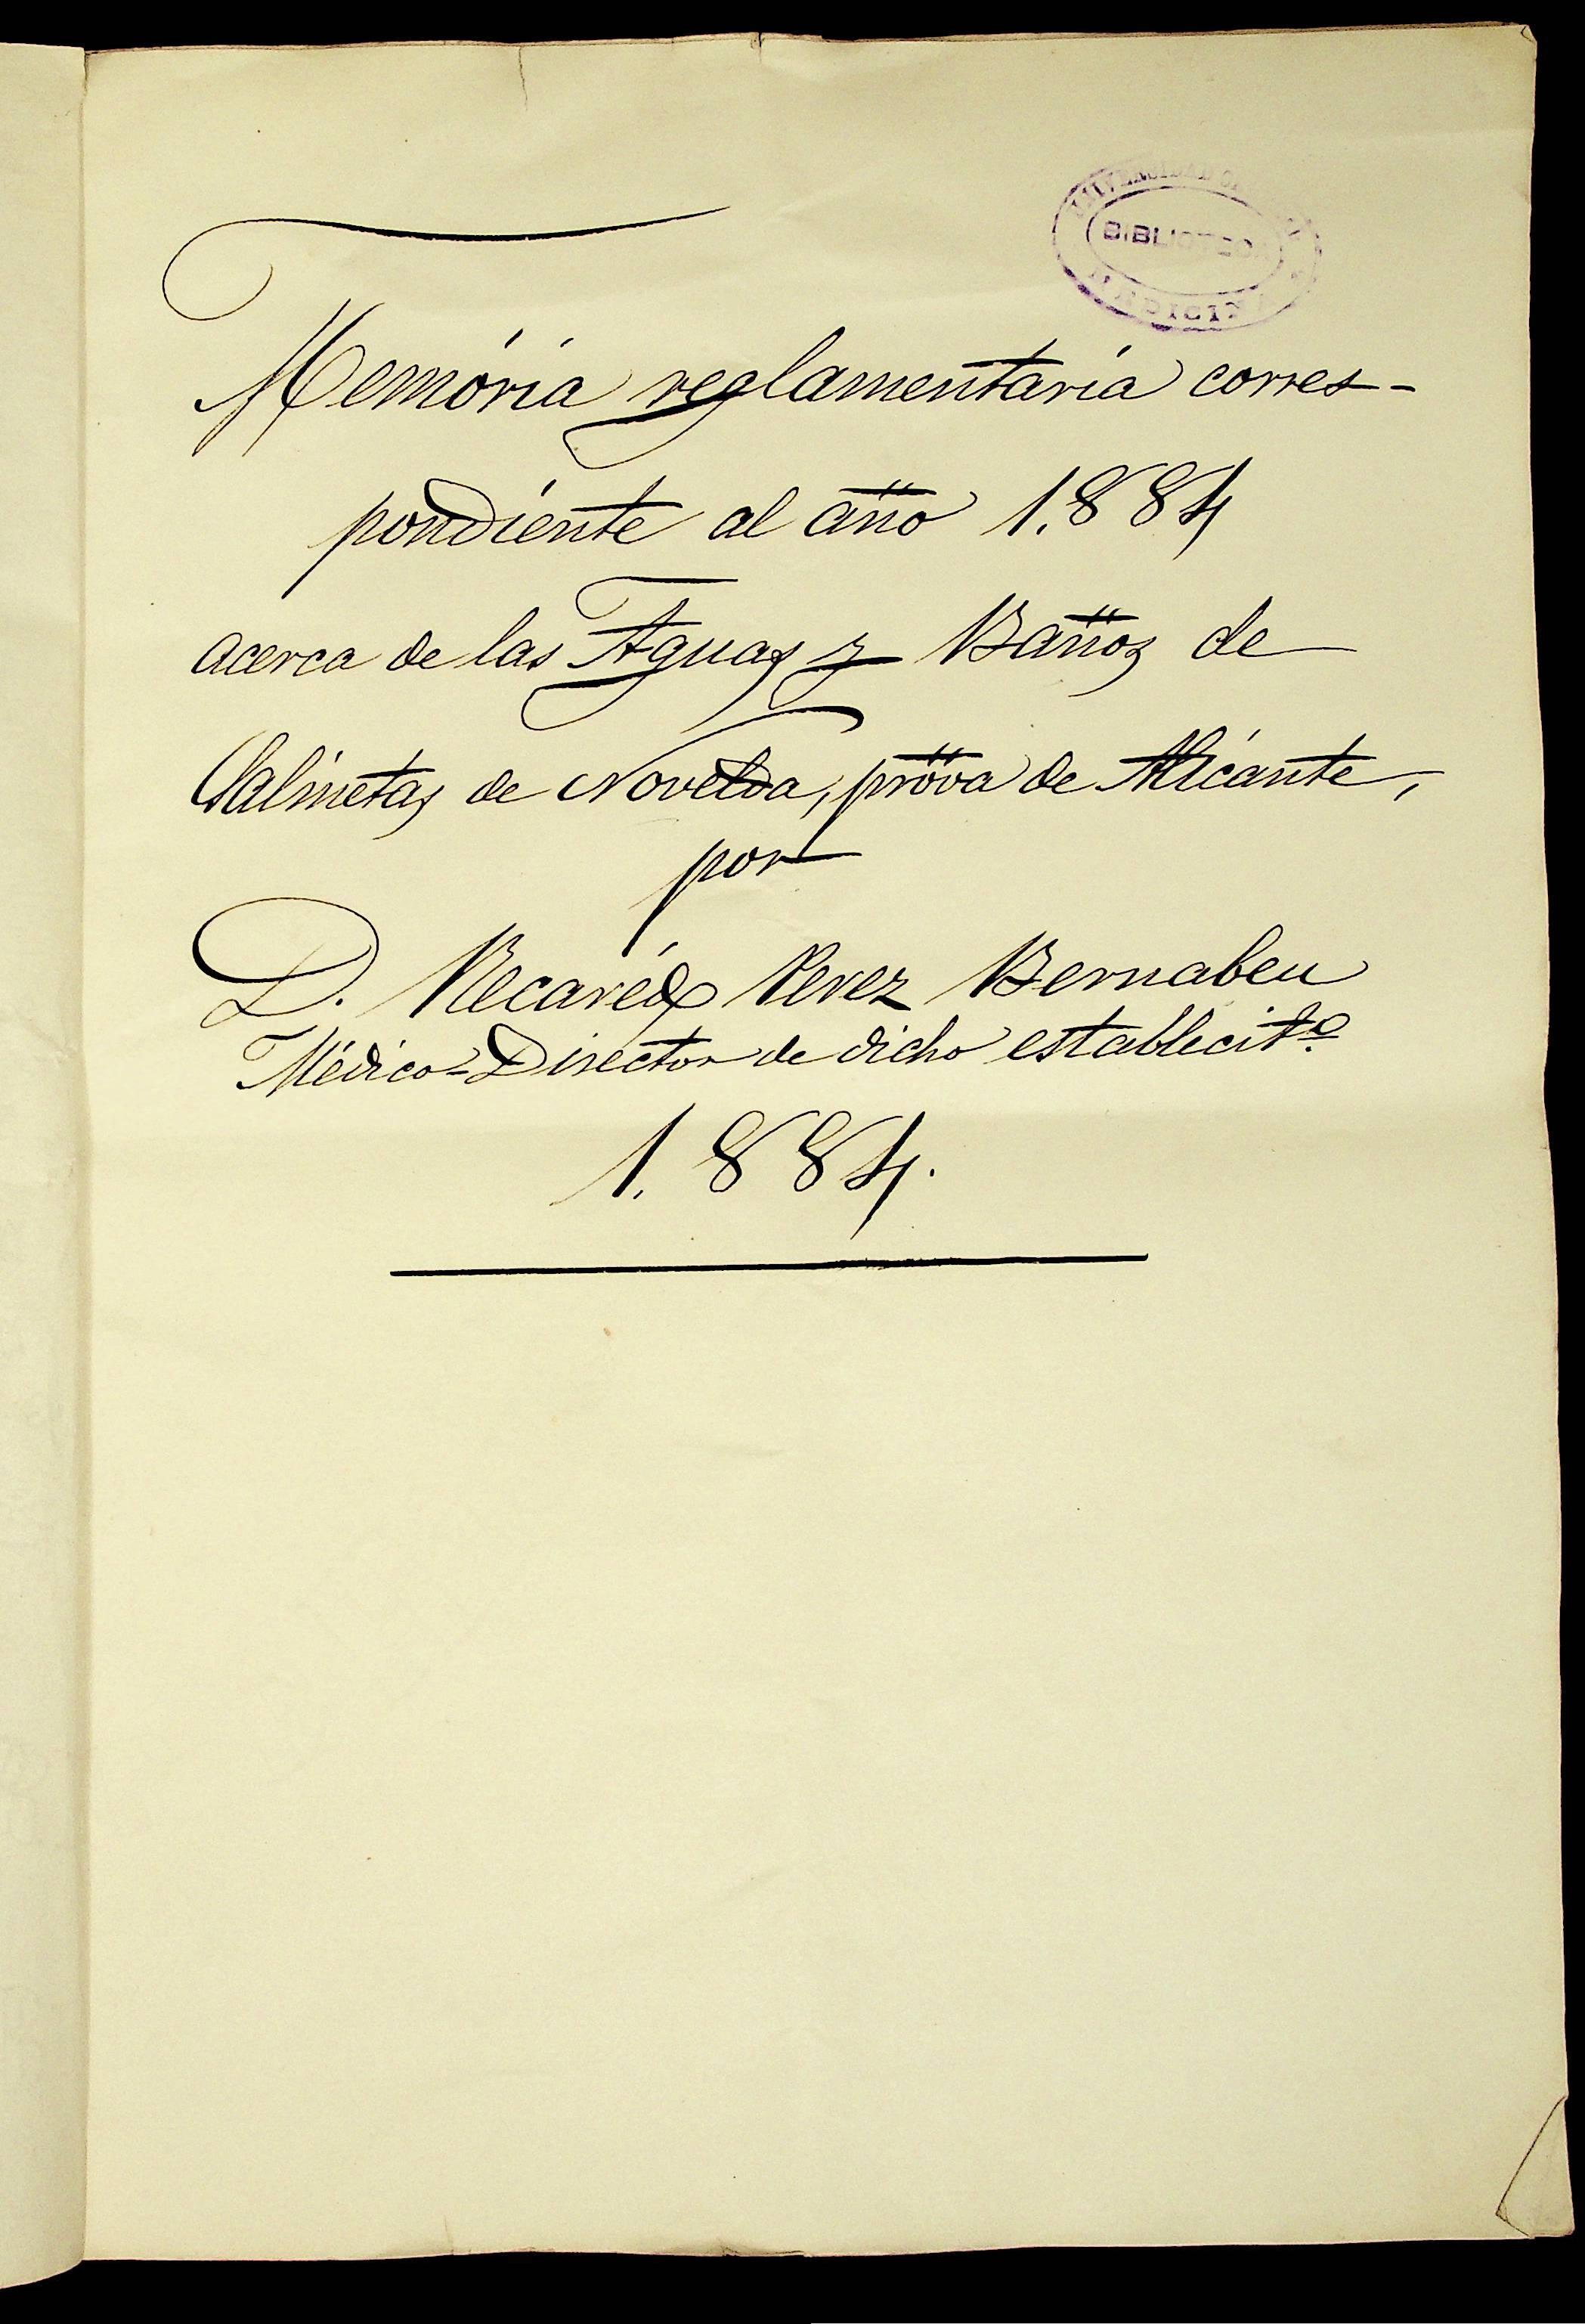 BIBLIOTECA
Memória reglamentaria corres-
pondiente al año 1.884
acerca de las Aguas y Baños de
Salinetas de Novelda, prov̈a de Alicante,
por
D. Recaredo Perez Bernabeu
Médico-Director de dicho establecitº
1.884.